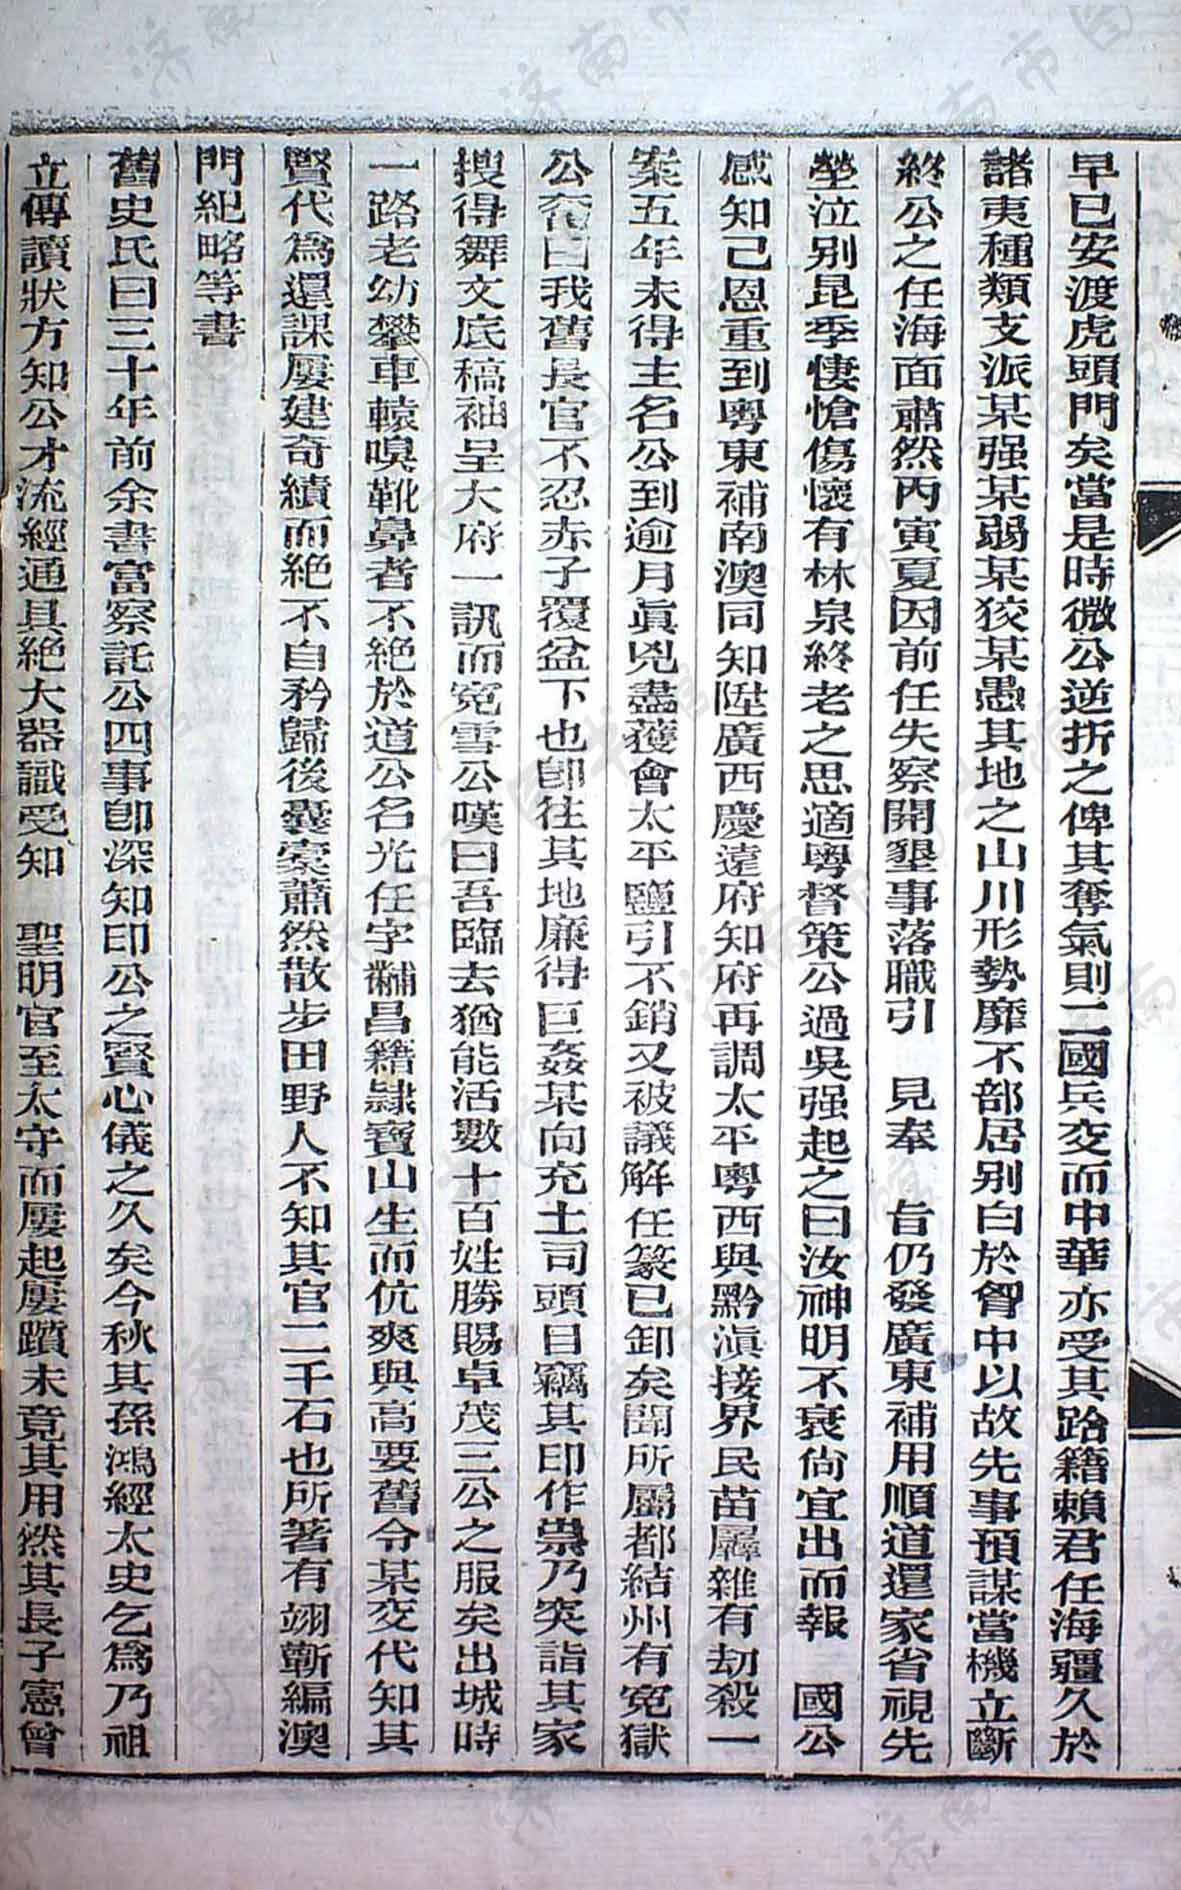 早已安渡虎頭門矣當是時微公逆折之俾其奪氣則二國兵交而中華亦受其跲籍賴君任海疆久於
諸夷種類支派某强某弱某狡某愚其地之山川形勢靡不部居别白於胷中以故先事預謀當機立斷
終公之任海面肅然丙寅夏因前任失察開墾事落職引　見奉　旨仍發廣東補用順道還家省視先
塋泣别昆季悽愴傷懷有林泉終老之思適粤督策公過吳强起之曰汝神明不衰尙宜出而報　國公
感知己恩重到粤東補南澳同知陞廣西慶遠府知府再調太平粤西與黔滇接界民苗羼雜有劫殺一
案五年未得主名公到逾月眞兇盡獲會太平鹽引不銷又被議解任篆已卸矣聞所屬都結州有寃獄
公奮曰我舊長官不忍赤子覆盆下也卽往其地廉得巨姦某向充土司頭目竊其印作祟乃突詣其家
搜得舞文底稿袖呈大府一訊而寃雪公嘆曰吾臨去猶能活數十百姓勝賜卓茂三公之服矣出城時
一路老幼攀車轅嗅靴鼻者不絕於道公名光任字黼昌籍隷寶山生而伉爽與高要舊令某交代知其
賢代爲還課屢建奇績而絕不自矜歸後囊槖蕭然散步田野人不知其官二千石也所著有翊蘄編澳
門紀略等書
舊史氏曰三十年前余書富察託公四事卽深知印公之賢心儀之久矣今秋其孫鴻經太史乞爲乃祖
立傳讀狀方知公才流經通具絕大器識受知　聖明官至太守而屢起屢躓未竟其用然其長子憲曾